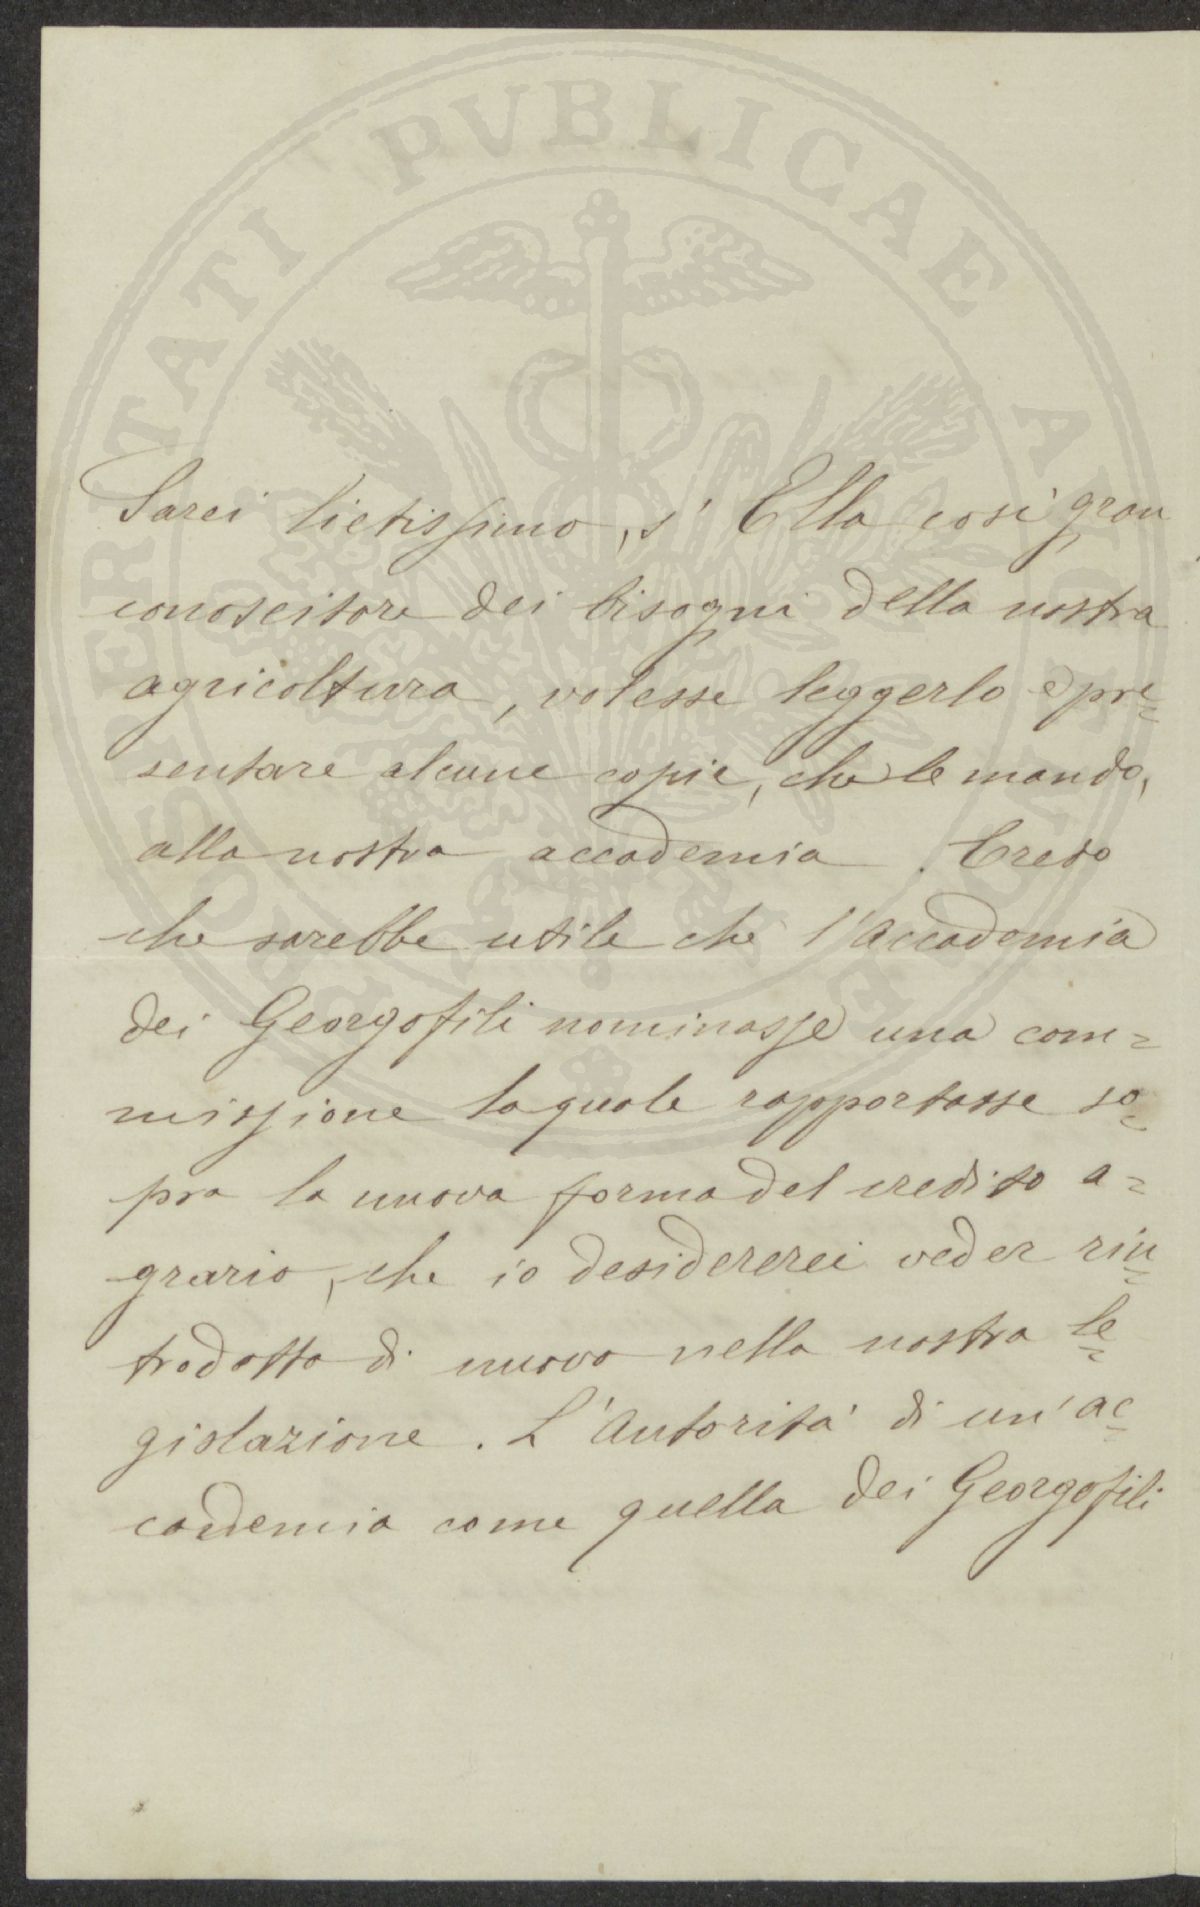 PROSPERITATI PVBLICAE AVGENDAE
Sarei lietissimo, s' Ella così gran
conoscitore dei bisogni della nostra
agricoltura, volesse leggerlo e pre=
sentare alcune copie, che le mando,
alla nostra accademia. Credo
che sarebbe utile che l'Accademia
dei Georgofili nominasse una com=
missione la quale rapportasse so=
pra la nuova forma del credito a=
grario, che io desidererei veder rin=
trodotto di nuovo nella nostra le=
gislazione. L'Autorità di un' ac=
cademia come quella dei Georgofili